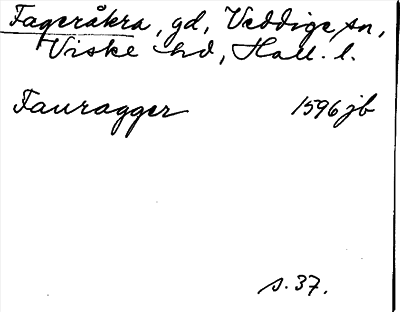 Fageråkra, gd, Veddige sn,
Viske hd, Hall. l.
Fauragger 1596 jb
s. 37.